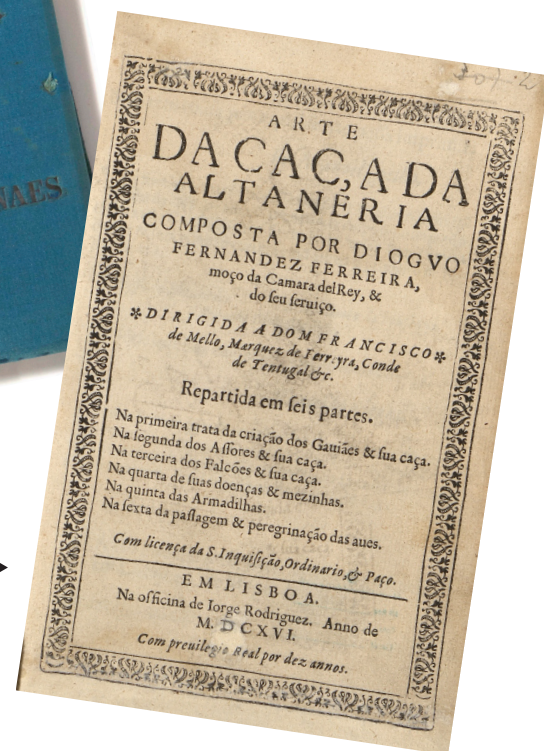 NAES
ARTE
DA CAC,A DA
ALTANERIA
COMPOSTA POR DIOGVO
FERNANDEZ FERREIRA,
moço da Camara delRey, &
do ſeu ſeruiço.
*DIRIGIDA A DOM FRANCISCO*
de Mello, Marquez de Ferreyra, Conde
de Tentugal &c.
Repartida em ſeis partes.
Na primeira trata da criação dos Gauiães & ſua caça.
Na ſegunda dos Aſſores & ſua caça.
Na terceira dos Falcões & ſua caça.
Na quarta de ſuas doenças & mezinhas.
Na quinta das Armadilhas.
Na ſexta da paſſagem & peregrinação das aues.
Com licença da S.Inquiſição,Ordinario,& Paço.
EM LISBOA.
Na officina de Iorge Rodriguez. Anno de
M. DCXVI.
Com preuilegio Real por dez annos.